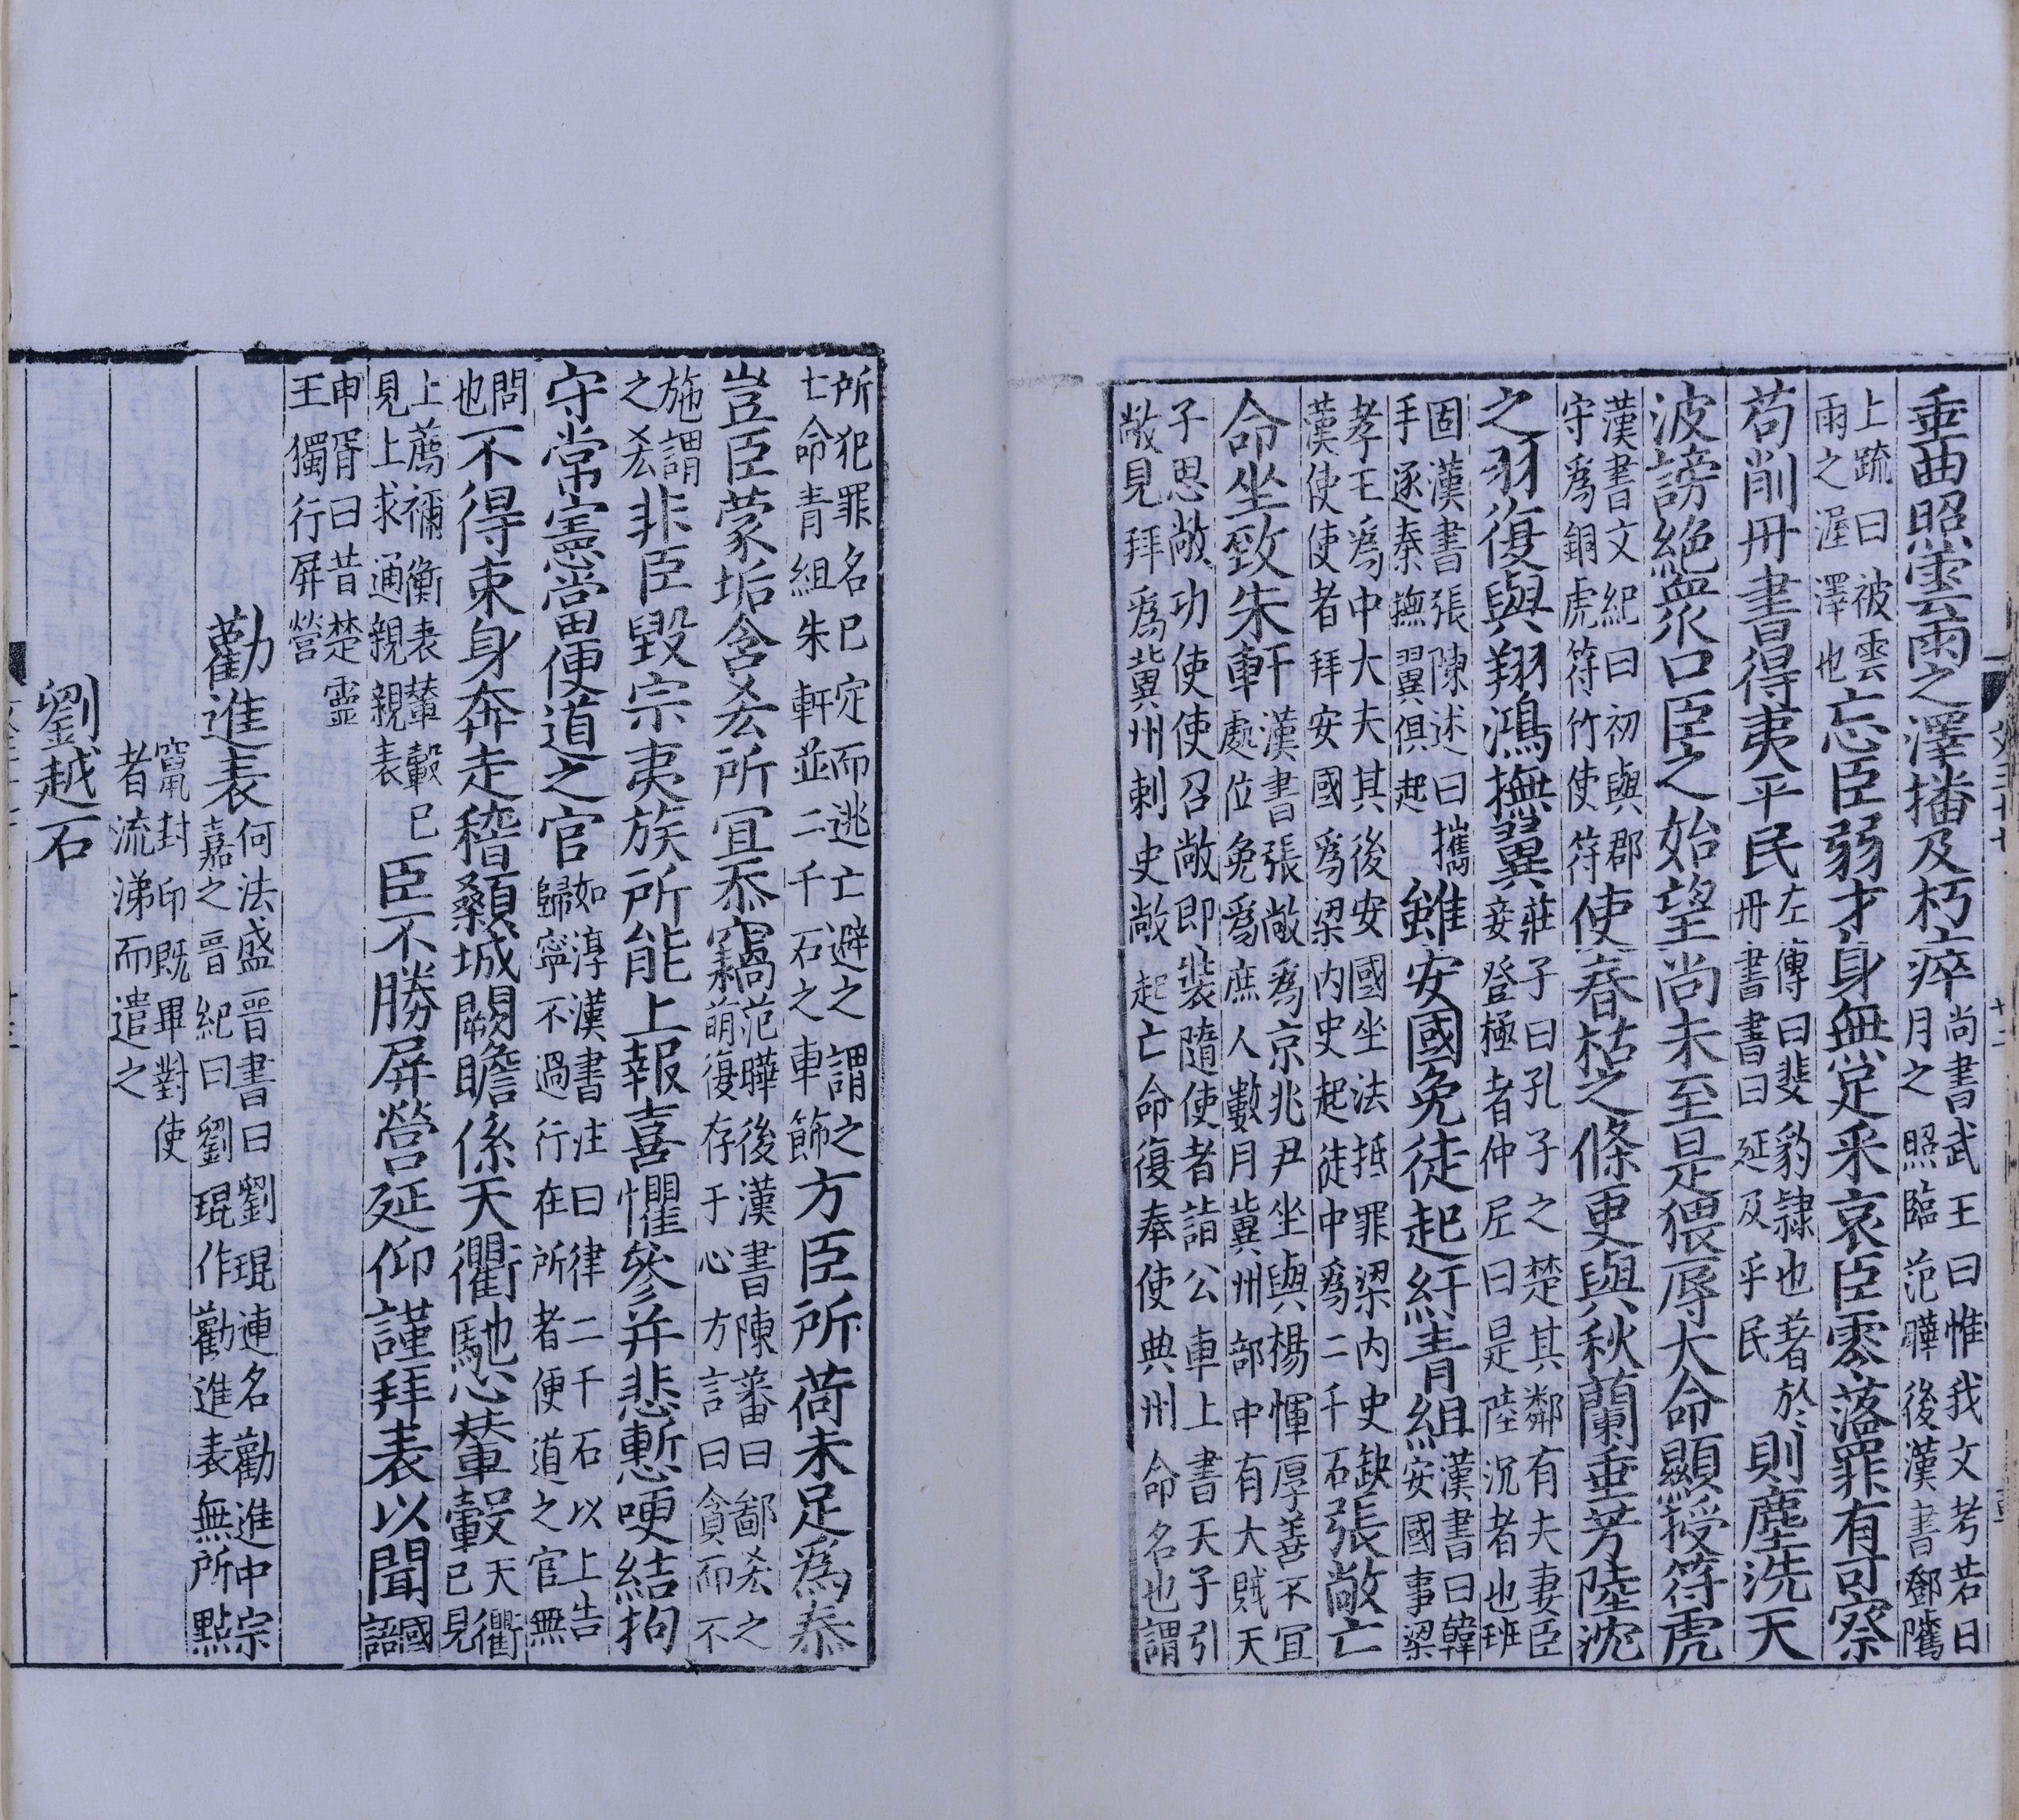 垂曲照雲雨之澤播及朽瘁尚書武王曰惟我文考若日月之照臨范曄後漢書鄧隲
上疏曰被雲雨之渥澤也忘臣弱才身無足采哀臣零落罪有可察
苟削丹書得夷平民左傳曰斐豹隷也著於丹書書曰延及乎民則塵洗天
波謗絶衆口臣之始望尚未至是猥辱大命顯授符虎
漢書文紀曰初與郡守爲銅虎符竹使符使春枯之條更與秋蘭垂芳陸沈
之羽復與翔鴻撫翼莊子曰孔子之楚其鄰有夫妻臣妾登極者仲尼曰是陸沉者也班
固漢書張陳述曰攜手逐秦撫翼俱起雖安國免徒起紆青組漢書曰韓安國事梁
孝王爲中大夫其後安國坐法抵罪梁内史缺漢使使者拜安國爲梁内史起徒中爲二千石張敞亡
命坐致朱軒漢書張敞爲京兆尹坐與楊惲厚善不宜處位免爲庶人數月冀州部中有大賊天
子思敞功使使召敞即裝隨使者詣公車上書天子引敞見拜爲冀州刺史敞起亡命復奉使典州命名也謂
所犯罪名已定而逃亡避之謂之七命青組朱軒並二千石之車飾方臣所荷未足爲泰
豈臣蒙垢含䒤所宜忝竊范曄後漢書陳蕃曰鄙䒤之萌復存于心方言曰貪而不
施謂之䒤非臣毀宗夷族所能上報喜懼參并悲慙哽結拘
守常憲當便道之官如淳漢書注曰律二千石以上告歸寧不過行在所者便道之官無
問也不得束身奔走稽顙城闕瞻係天衢馳心輦轂天衢已見
上薦禰衡表輦轂已見上求通親親表臣不勝屏營延仰謹拜表以聞國語
申胥曰昔楚靈王獨行屏營
勸進表何法盛晉書曰劉琨連名勸進中宗嘉之晉紀曰劉琨作勸進表無所點
竄封印既畢對使者流涕而遣之
劉越石